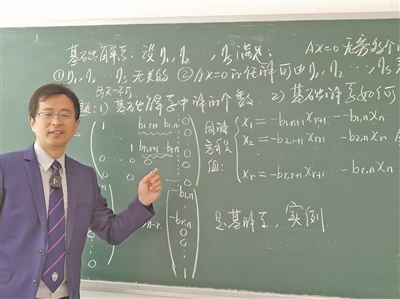 基础解系：设η₁, η₂ ⋯, ηₛ 满足： AX=0 无穷多个
① η₁, η₂, ⋯ ηₛ 无关的 ② AX=0 的任解可由 η₁, η₂, ⋯, ηₛ
题：1) 基础解系中解的个数 2) 基础解系如何
1 b₁,r+1 b₁,n 0
1 br,r+1 br,n 0
0 0 0
0 0 0
同解方程组：
x₁ = -b₁,r+1 xr+1 ⋯ -b₁,n xn
x₂ = -b₂,r+1 xr+1 ⋯ -b₂,n xn
⋮
xr = -br,r+1 xr+1 ⋯ -br,n xn
-b₁,n
⋮
-br,n
0
0
⋮
1
是基础解系，实例